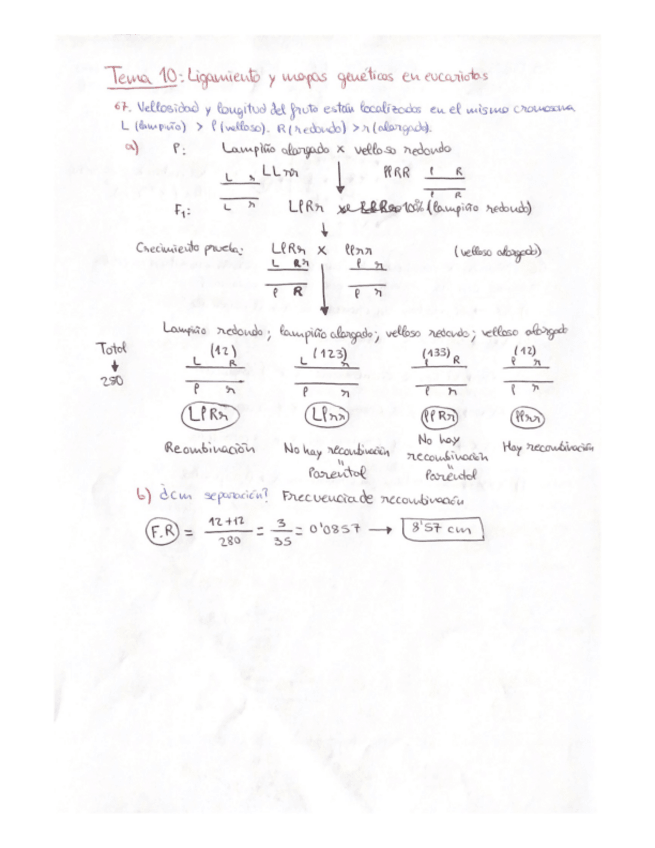 Tema 10: Ligamiento y mapas genéticos en eucariotas
67. Vellosidad y longitud del fruto están localizados en el mismo cromosoma
L (lampiño) > l (velloso). R (redondo) > r (alargado).
a) P: Lampiño alargado x velloso redondo
L r LLrr llRR l R
L r l R
F1: LlRr 100% (lampiño redondo)
Crecimiento prueba: LlRr x llrr (velloso alargado)
L r l r
l R l r
Lampiño redondo; lampiño alargado; velloso redondo; velloso alargado
Total (12) (123) (133) (12)
L R L r l R l r
280
l r l r l r l r
LlRr Llrr llRr llrr
Recombinación No hay recombinación No hay recombinación Hay recombinación
" "
Parental Parental
b) ¿cm separación? Frecuencia de recombinación
F.R = 12+12 / 280 = 3 / 35 = 0'0857 → 8'57 cm